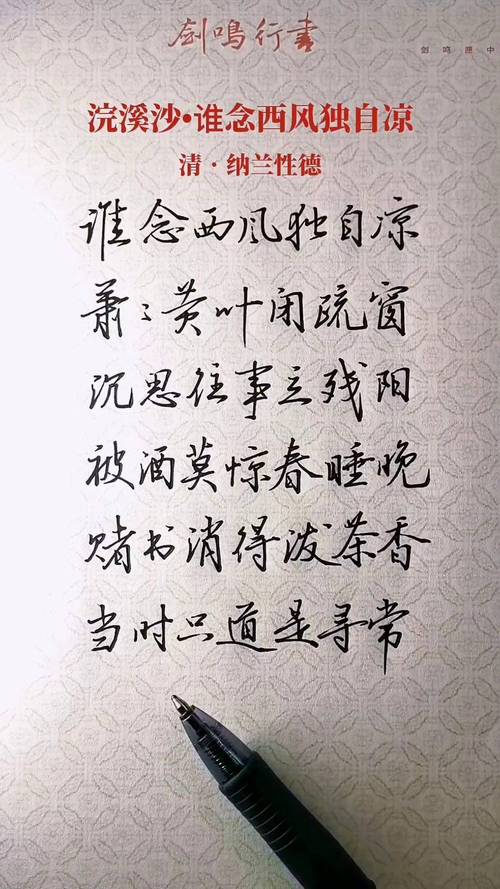 剑鸣行书
剑鸣愿中
浣溪沙•谁念西风独自凉
清·纳兰性德
谁念西风独自凉
萧々黄叶闭疏窗
沉思往事立残阳
被酒莫惊春睡晚
赌书消得泼茶香
当时只道是寻常